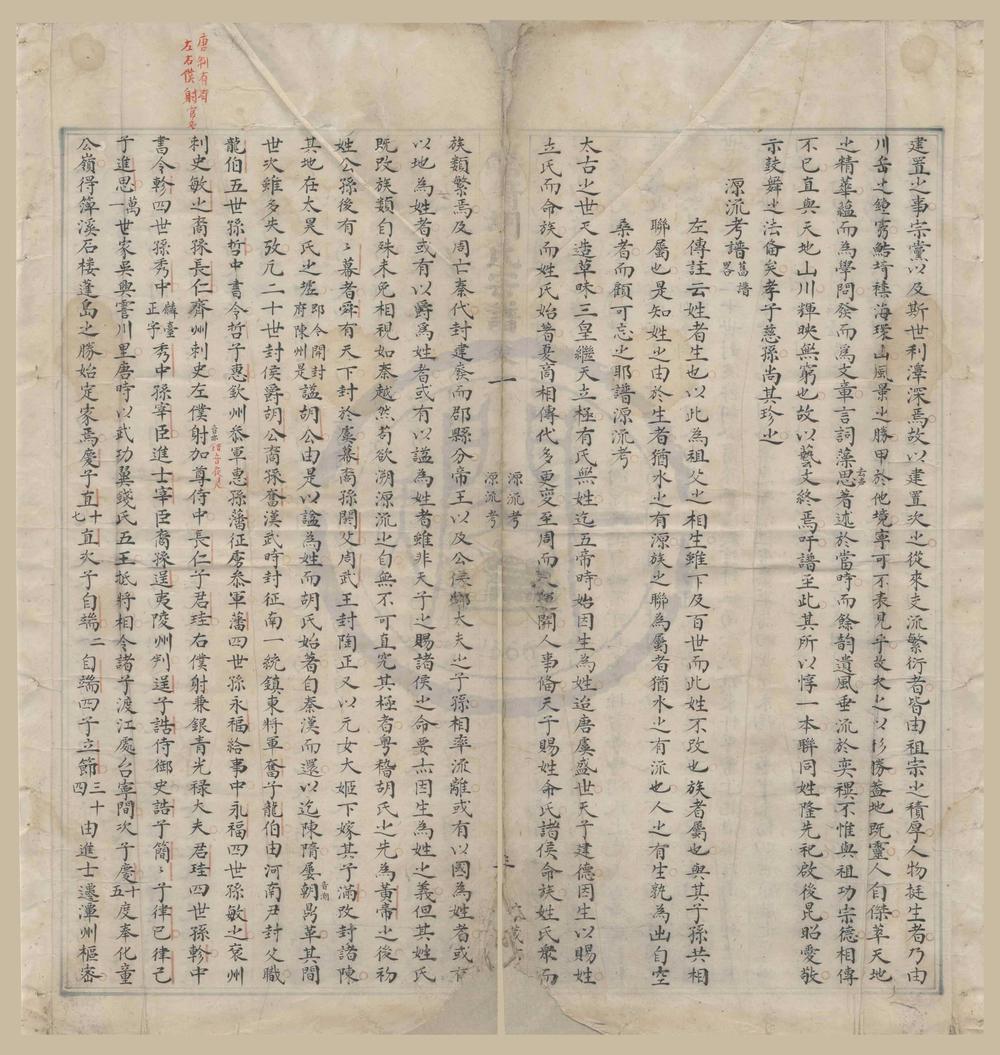 建置之事宗黨以及斯世利澤深焉故以建置次之從來支流繁衍者皆由祖宗之積厚人物挺生者乃由
川岳之鍾寄鮚埼襟海環山風景之勝甲於他境寧可不表見乎故次之以形勝蓋地既靈人自傑萃天地
之精華蘊而為學問發而為文章言詞藻思著述於當時而餘韵遺風垂流於奕禩不惟與祖功宗德相傳
不已直與天地山川輝映無窮也故以藝文終焉吁譜至此其所以惇一本聯同姓隆先祀啟後昆昭愛敬
示鼓舞之法俻矣孝子慈孫尚其珍之
源流考譜舊譜畧
左傳註云姓者生也以此為祖父之相生雖下及百世而此姓不改也族者屬也與其子孫共相
聯屬也是知姓之由於生者猶水之有源族之聯為屬者猶水之有派也人之有生孰為出自空
桑者而顧可忘之耶譜源流考
太古之世天造草昧三皇繼天立極有氏無姓迄五帝時始因生為姓迨唐虞盛世天子建德因生以賜姓
立氏而命族而姓氏始著夏商相傳代多更變至周而開人事俻天子賜姓命氏諸侯命族姓氏衆而
源流考
源流考
族類繁焉及周亡秦代封建廢而郡縣分帝王以及公侯鄉大夫之子孫相率派離或有以國為姓者或有
以地為姓者或有以爵為姓者或有以謚為姓者雖非天子之賜諸侯之命要亦因生為姓之義但其姓氏
既改族類自殊未免相視如秦越然苟欲溯源流之自無不可直究其極者粵稽胡氏之先為黃帝之後初
姓公孫後有〻暮者舜有天下封於虞暮裔孫閼父周武王封陶正又以元女大姬下嫁其子滿改封諸陳
其地在太昊氏之墟即今開封府陳州是謚胡公由是以謚為姓而胡氏始著自秦漢而還以迄陳隋屢朝音潮鼎革其間
世次雖多失攷凢二十世封侯爵胡公裔孫奮漢武時封征南一統鎮東將軍奮子龍伯由河南尹封父職
龍伯五世孫哲中書令哲子惠欽州叅軍惠孫藩征虜叅軍藩四世孫永福給事中永福四世孫敏之衮州
刺史敏之裔孫長仁齊州刺史左僕射加尊侍中長仁子君珪右僕射兼銀青光禄大夫君珪四世孫軫中
書令軫四世孫秀中麟臺正字秀中孫宰臣進士宰臣裔孫逞夷陵州判逞子誥侍御史誥子簡〻子律已律已
子進思萬一世家吳興霅川里唐時以武功翼錢氏五王抵將相令諸子渡江處台寧間次子慶十五度奉化童
公嶺得䔕溪石楼蓬島之勝始定家焉慶子直十七直次子自端二自端四子立節三十四由進士遷潭州樞密
唐制有有
左右僕射官名